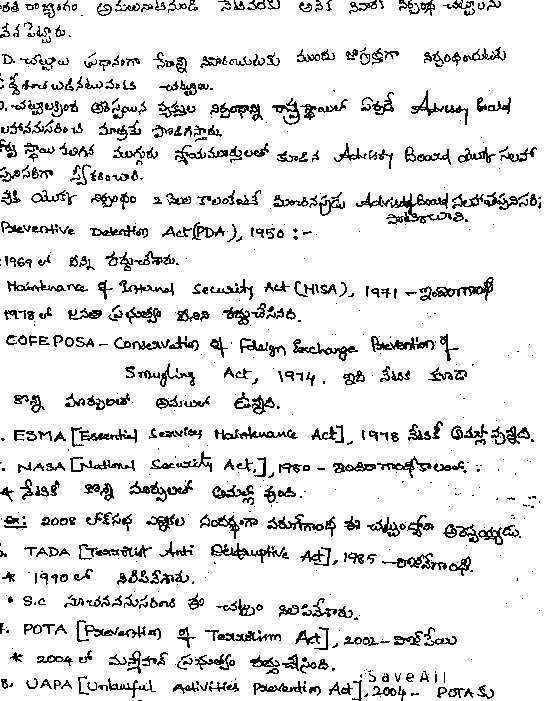 రాజ్యాంగం అమలునాటినుండి నేటివరకు అనేక నివారక నిర్బంధ చట్టాలను
P.D. చట్టాలు ప్రధానంగా నేరాన్ని నివారించుటకు ముందు జాగ్రత్తగా నిర్బంధించుటకు
చట్టాలు.
వ్యక్తుల నిర్బంధాన్ని రాష్ట్రస్థాయిలో ఏర్పడే Advisory Board
మాత్రమే పొడిగిస్తారు.
స్థాయి కలిగిన ముగ్గురు న్యాయమూర్తులతో కూడిన Advisory Board యొక్క సలహా
స్వీకరించాలి.
యొక్క నిర్బంధం 2 నెలల కాలంకంటే మించినప్పుడు Advisory Board సలహా తప్పనిసరి
Preventive Detention Act (PDA), 1950 :-
1969 లో దీన్ని రద్దుచేశారు.
Maintenance of Internal Security Act (MISA), 1971 - ఇందిరాగాంధీ
1978 లో జనతా ప్రభుత్వం దీనిని రద్దుచేసినది.
COFEPOSA - Conservation of Foreign Exchange Prevention of
Smugling Act, 1974. ఇది నేటికి కూడా
కొన్ని మార్పులతో అమలులో ఉన్నది.
. ESMA [Essential Services Maintenance Act], 1978 నేటికి అమల్లో వున్నది.
. NASA [National Security Act.], 1980 - ఇందిరాగాంధీ కాలంలో.
* నేటికి కొన్ని మార్పులతో అమల్లో వుంది.
ఉదా: 2008 లోక్‌సభ ఎన్నికల సందర్భంగా వరుణ్‌గాంధీ ఈ చట్టం ద్వారా అరెస్టయ్యాడు.
. TADA [Terrorist Anti Disruptive Act], 1985 - రాజీవ్‌గాంధీ.
* 1990 లో నిలిపివేశారు.
* S.C సూచనననుసరించి ఈ చట్టం నిలిపివేశారు.
7. POTA [Prevention of Terrorism Act], 2002 - వాజ్‌పేయి
* 2004 లో మన్మోహన్ ప్రభుత్వం రద్దు చేసింది.
8. UAPA [Unlawful Activities Prevention Act], 2004 - POTA కు
SaveAll